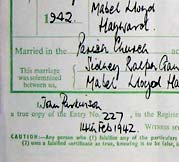 Mabel Lloyd
1942. Hayward.
Married in the Parish Church
This marriage Sidney Ralph
was solemnized
between us, Mabel Lloyd
in
a true copy of the Entry No. 227, in the Register
14th Feb 1942. Witness
CAUTION:—Any person who (1) falsifies any of the particulars
(2) uses a falsified certificate as true, knowing it to be false,